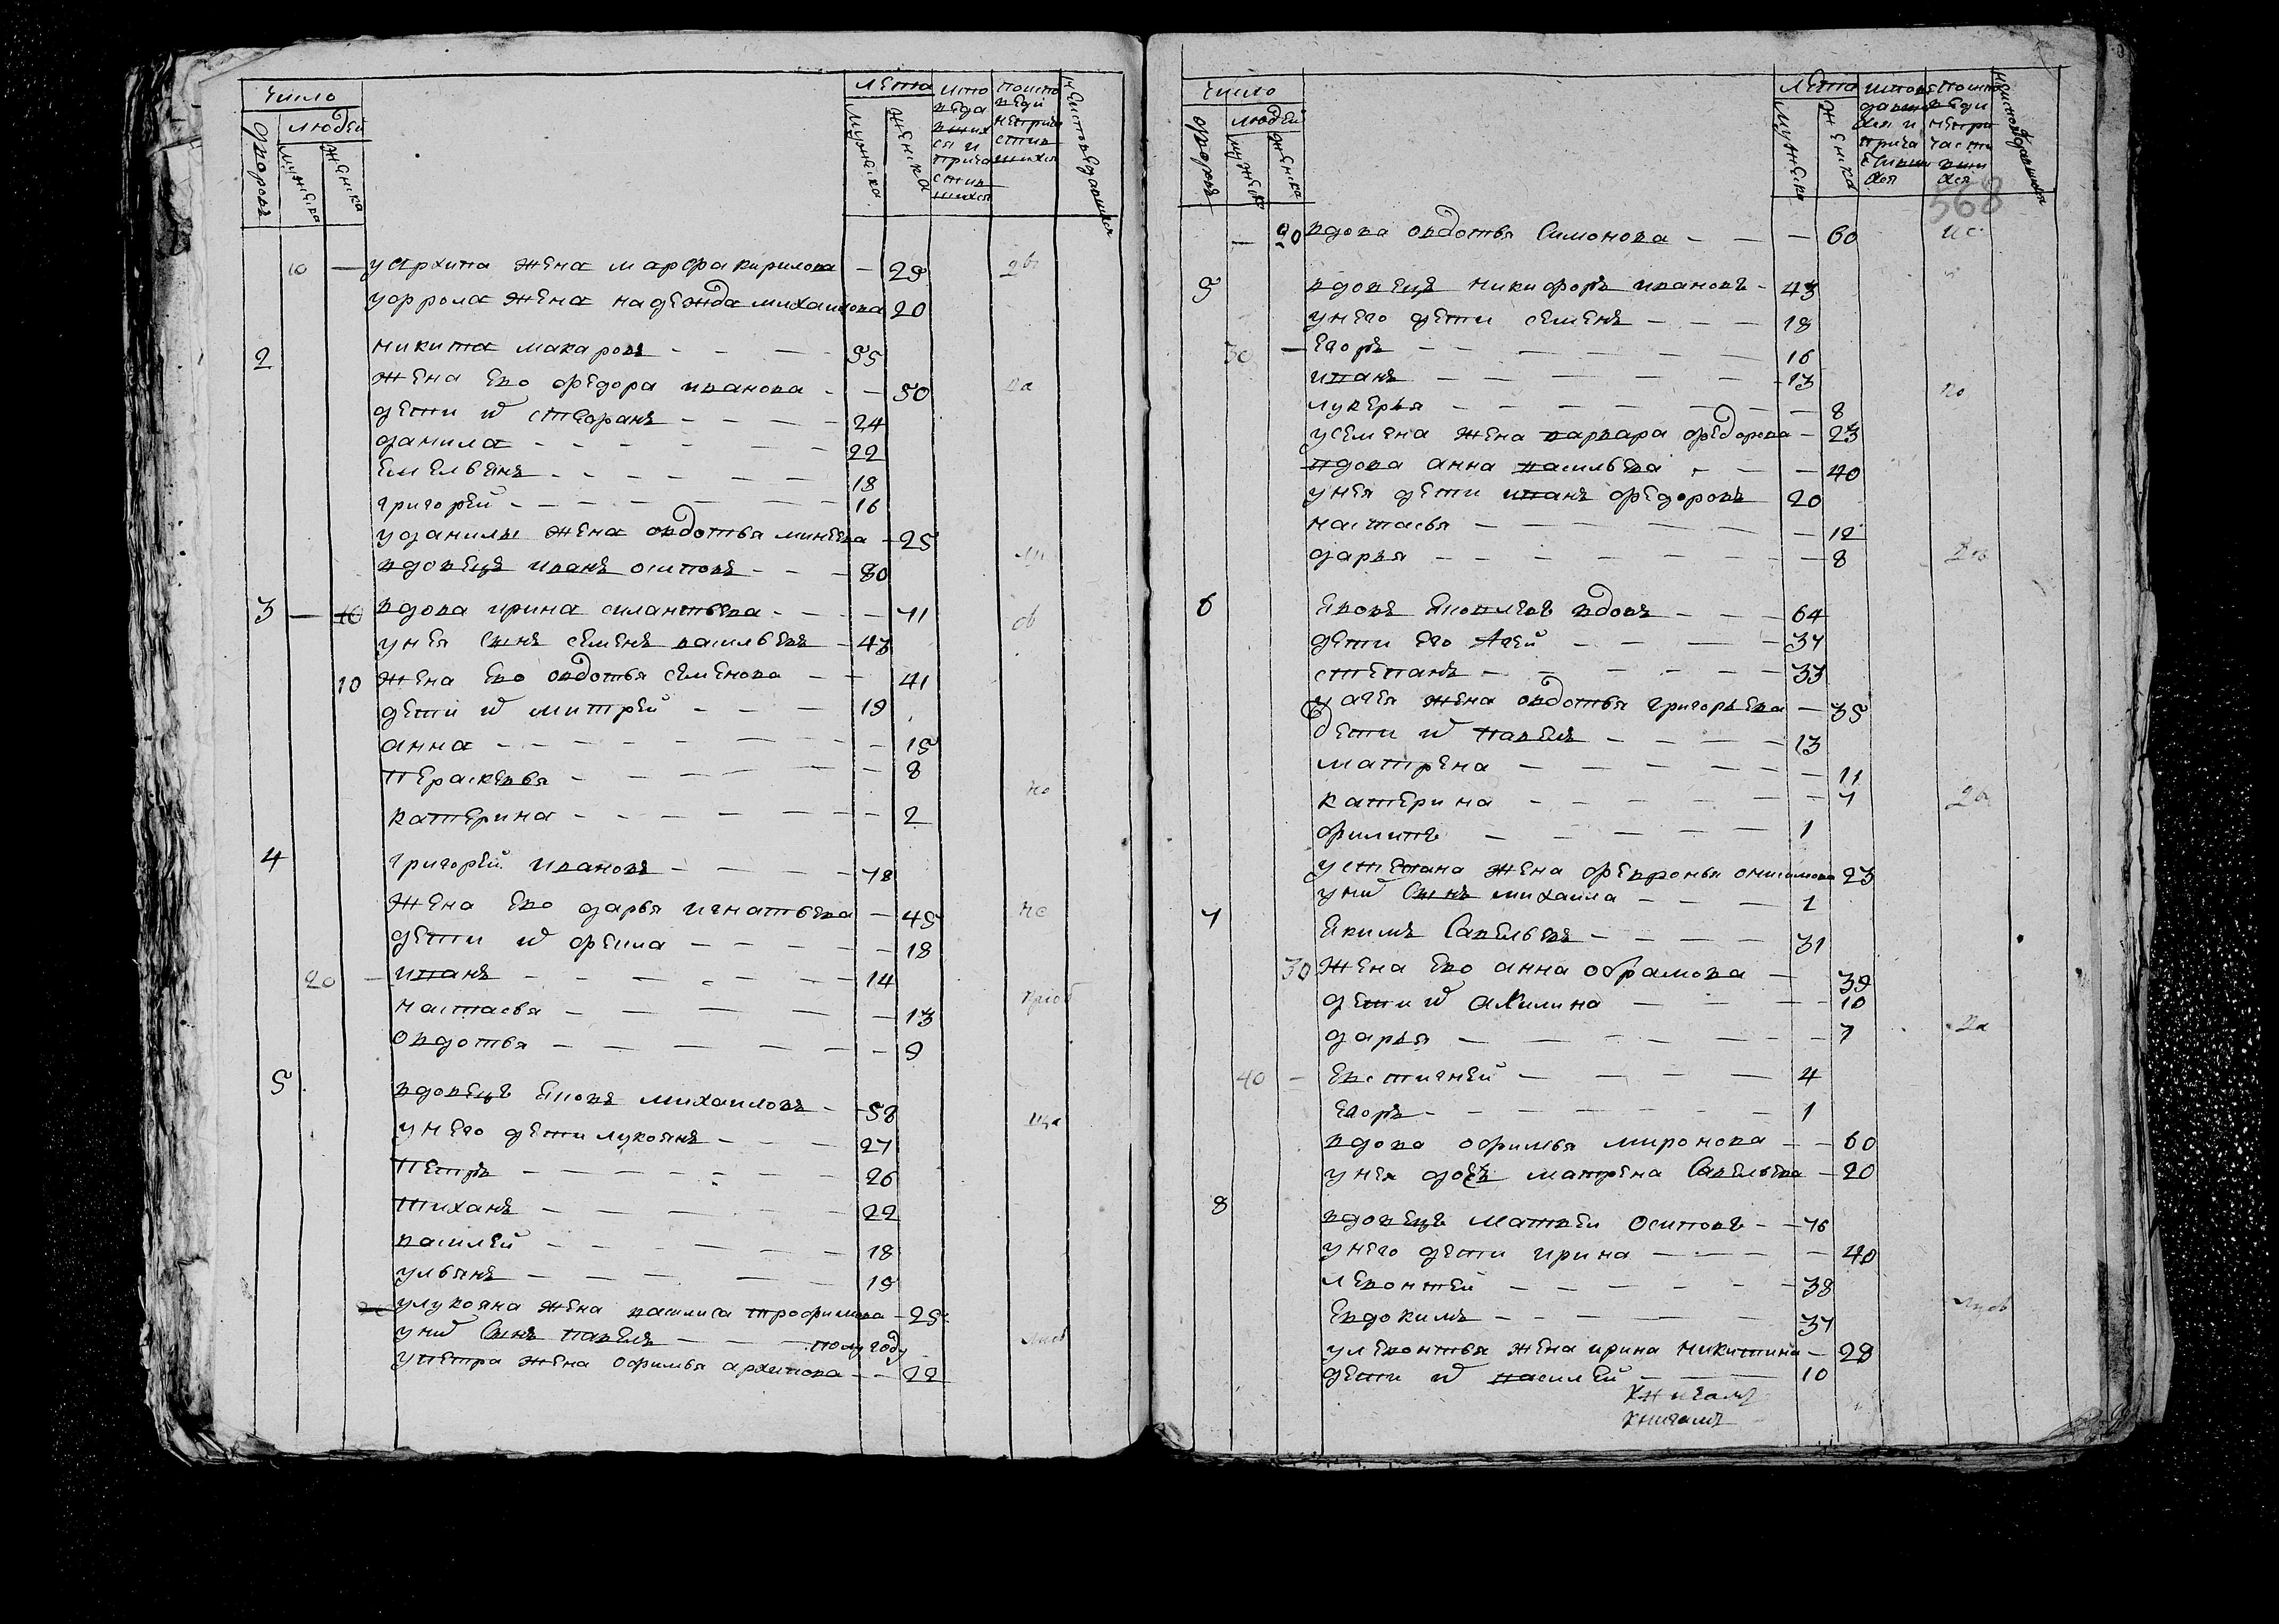 число
дворовъ
людей
мужеска
женска
лета
мужеска
женска
испо
веда
вших
ся и
прича
стив
шихся
10 — у архипа жена марфа кирилова — 29 дв
у фрола жена надежда михаилова 20
2 никита макаровъ — 55
жена ево федора иванова — 50
дети их стефанъ — 24
данила — 22
емельянъ — 18
григорей — 16
у данилы жена овдотья минеева — 25
вдовецъ иванъ осиповъ — 80
3 — 10 вдова ирина силантьева — 71 ов
у нея сынъ семенъ васильевъ — 43
10 жена ево овдотья семенова — 41
дети их митрей — 19
анна — 15
перасковья — 8
катерина — 2
4 григорей ивановъ — 78
жена ево дарья игнатьева — 45
дети их фекла — 18
20 — иванъ — 14
настасья — 13
овдотья — 9
5 вдовецъ яковъ михаиловъ — 58
у него дети лукоянъ — 27
петръ — 26
тиханъ — 22
василей — 18
ульянъ — 19
20 у лукояна жена василиса трофимова — 25
у них сынъ павелъ — полугоду
у петра жена офимья архипова — 22
число
дворовъ
людей
мужеска
женска
лета
мужеска
женска
568
— 20 вдова овдотья симонова — 60
5 вдовецъ никифоръ ивановъ — 43
у него дети семенъ — 18
30 — егоръ — 16
иванъ — 13
лукерья — 8
у семена жена варвара федорова — 23
вдова анна васильева — 40
у нея дети иванъ федоровъ 20
настасья — 12
дарья — 8
6 яковъ яковлевъ вдовъ — 64
дети его агей — 37
степанъ — 33
у агея жена овдотья григорьева — 35
дети их павелъ — 13
матрена — 11
катерина — 7
филипъ — 1
у степана жена февронья онисимова 23
у них сынъ михаила — 1
7 якимъ савельевъ — 31
30 жена ево анна обрамова — 39
дети их акилина — 10
дарья — 7
40 — евстигней — 4
егоръ — 1
вдова офимья миронова — 60
у нея дочь матрена савельева — 20
8 вдовецъ матвеи осиповъ — 76
у него дети ирина — 40
левонтей — 38
евдокимъ — 37
у левонтья жена ирина никитина — 28
дети их василей — 10
книгамъ
книгамъ